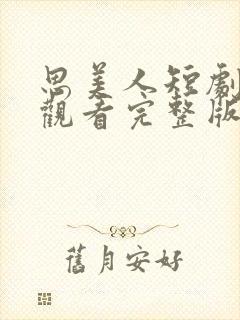 思美人短劇
觀看完整版
舊月安好